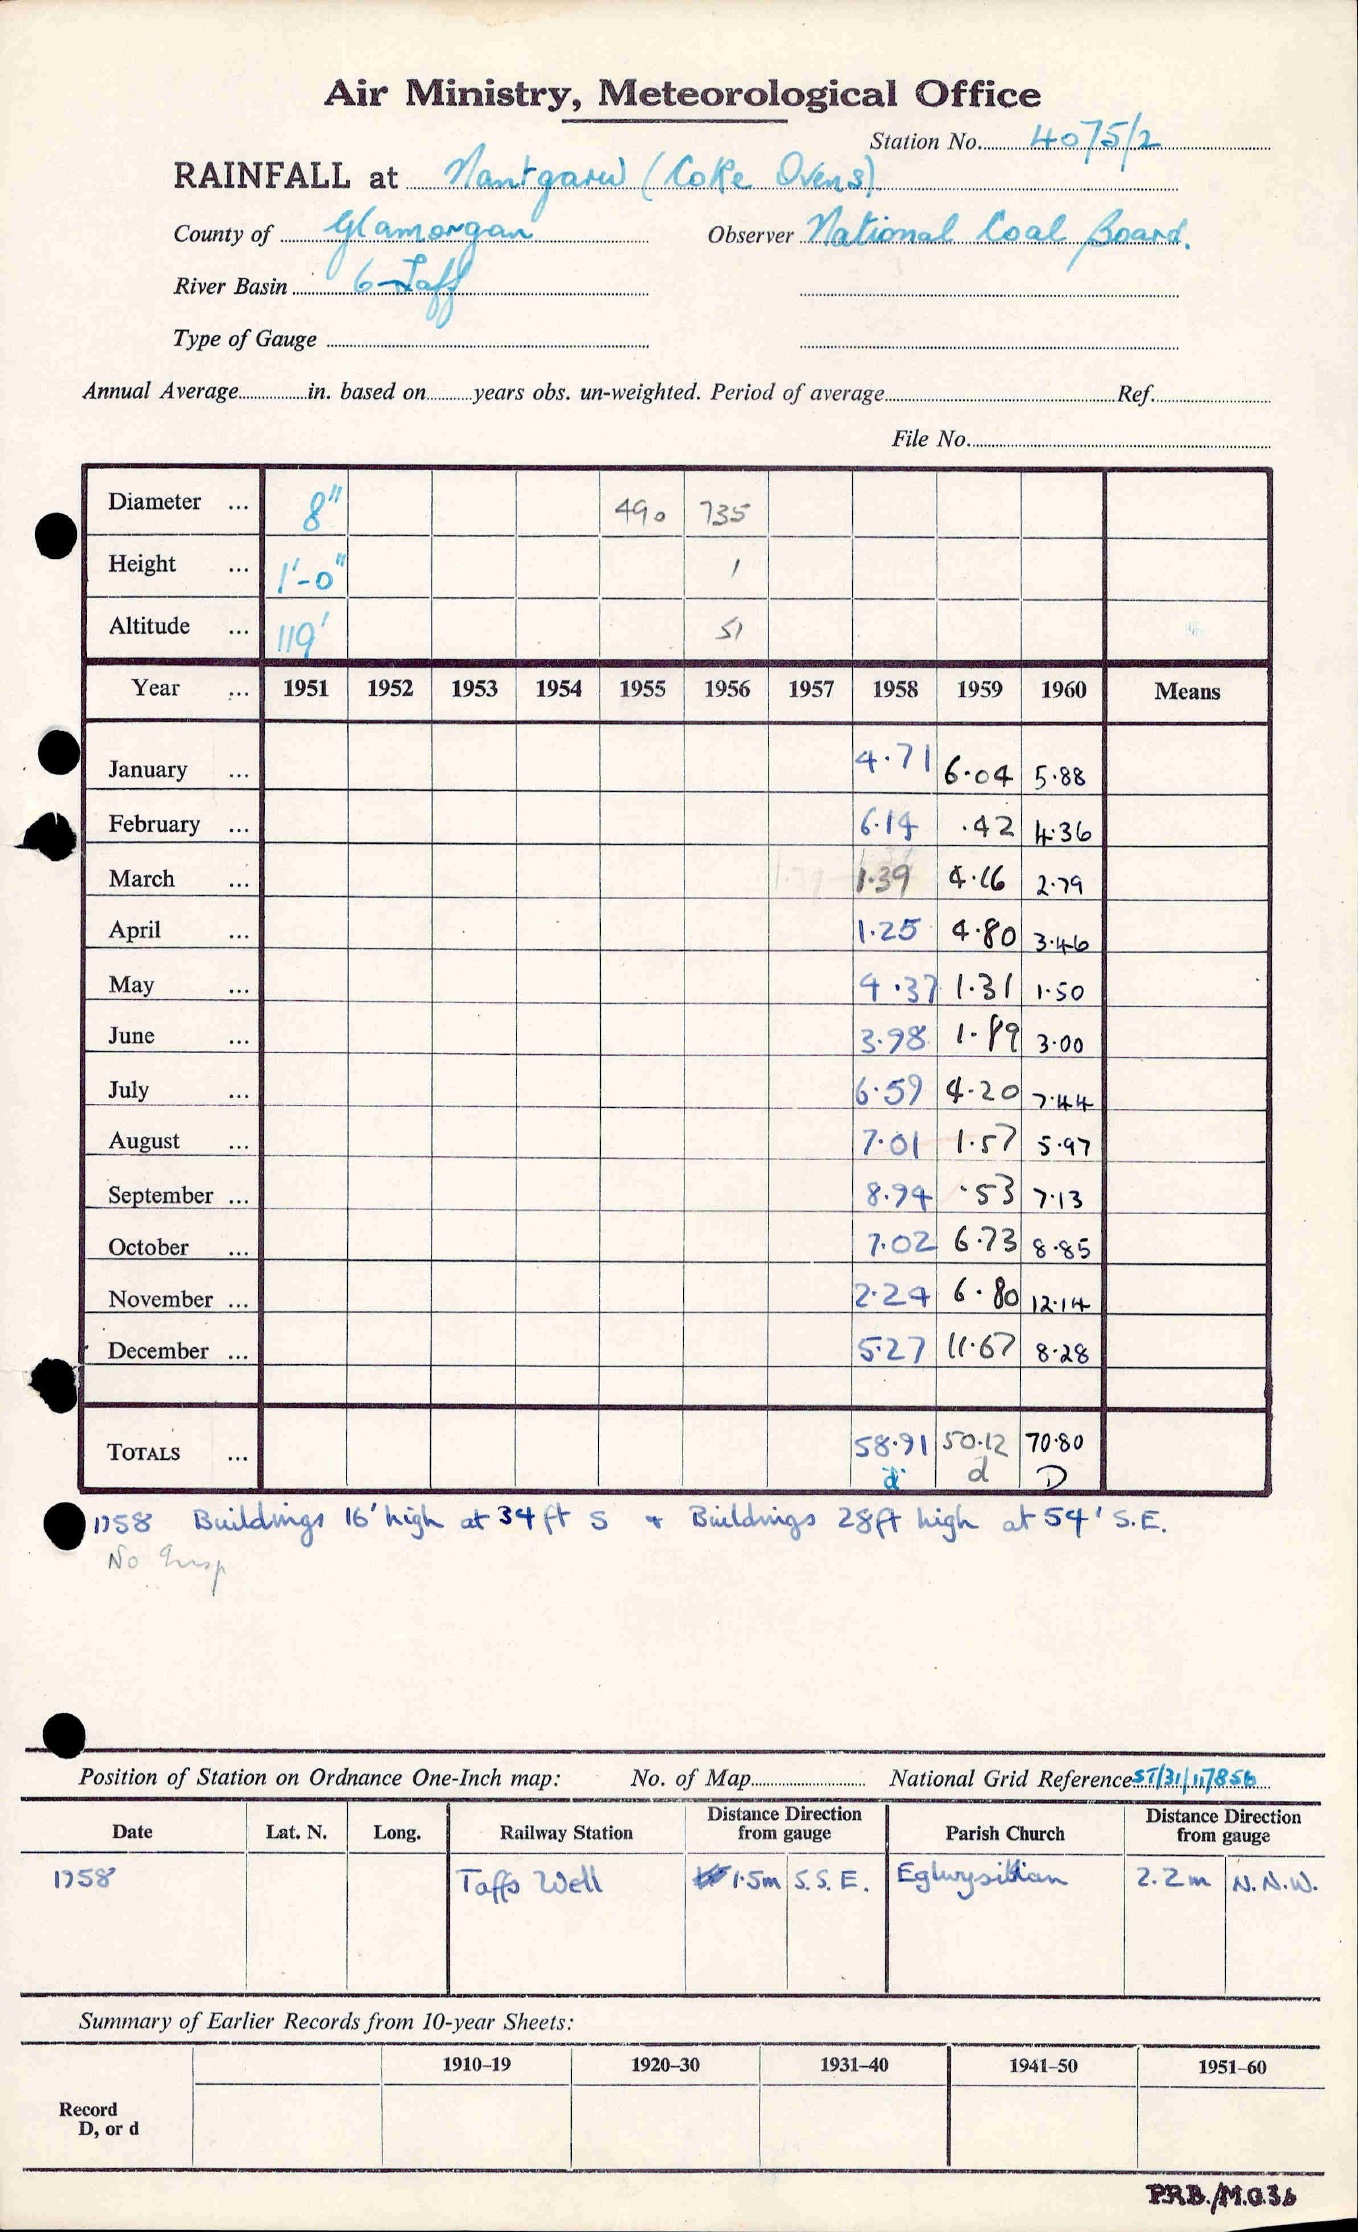 Air Ministry, Meteorological Office
Station No. 4075/2
RAINFALL at Nantgarw (Coke Ovens)
County of Glamorgan Observer National Coal Board.
River Basin 6 Taff
Type of Gauge
Annual Average in. based on years obs. un-weighted. Period of average Ref.
File No.
Diameter ... 8" 490 735
Height ... 1'-0" 1
Altitude ... 119' 51
Year ... 1951 1952 1953 1954 1955 1956 1957 1958 1959 1960 Means
January ... 4.71 6.04 5.88
February ... 6.14 .42 4.36
March ... 1.39 4.16 2.79
April ... 1.25 4.80 3.46
May ... 4.37 1.31 1.50
June ... 3.98 1.89 3.00
July ... 6.59 4.20 7.44
August ... 7.01 1.57 5.97
September ... 8.94 .53 7.13
October ... 7.02 6.73 8.85
November ... 2.24 6.80 12.14
December ... 5.27 11.67 8.28
TOTALS ... 58.91 50.12 70.80
d d D
1958 Buildings 16' high at 34 ft S + Buildings 28ft high at 54' S.E.
No Insp
Position of Station on Ordnance One-Inch map: No. of Map National Grid Reference ST/31/117856
Date Lat. N. Long. Railway Station Distance Direction from gauge Parish Church Distance Direction from gauge
1958 Taffs Well 1.5m S.S.E. Eglwysilian 2.2m N.N.W.
Summary of Earlier Records from 10-year Sheets:
1910–19 1920–30 1931–40 1941–50 1951–60
Record
D, or d
P.R.B./M.O.3b